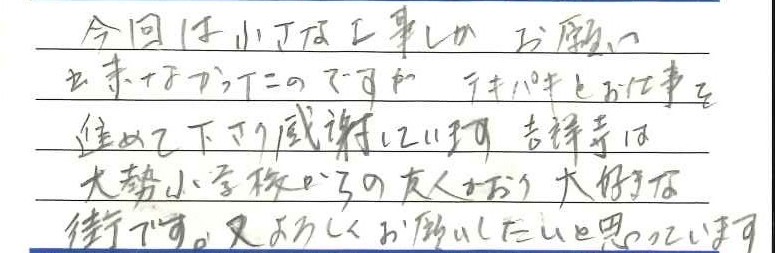 今回は小さな工事しか お願い
出来なかったのですが テキパキとお仕事を
進めて下さり感謝しています 吉祥寺は
大勢小学校からの友人がおり 大好きな
街です。又よろしくお願いしたいと思っています